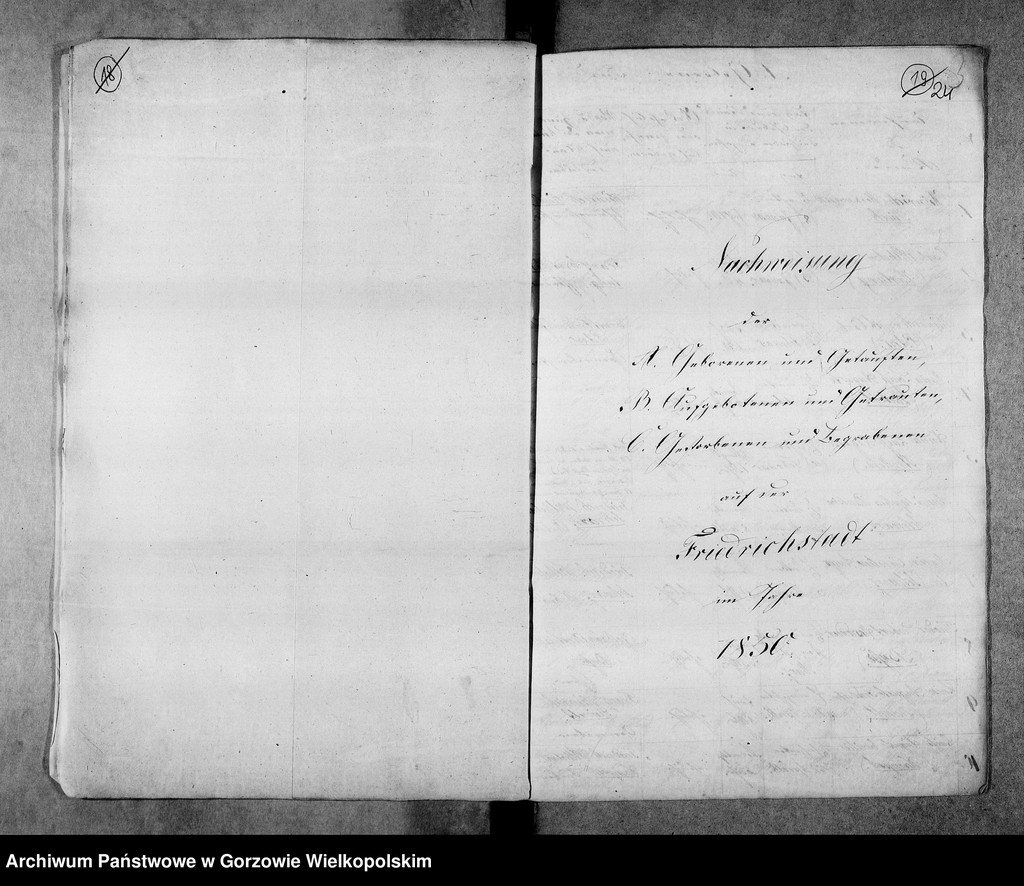 18
19
24
Nachweisung
der
A. Geborenen und Getauften,
B. Aufgebotenen und Getrauten,
C. Gestorbenen und Begrabenen
auf der
Friedrichstadt
im Jahre
1850.
Archiwum Państwowe w Gorzowie Wielkopolskim